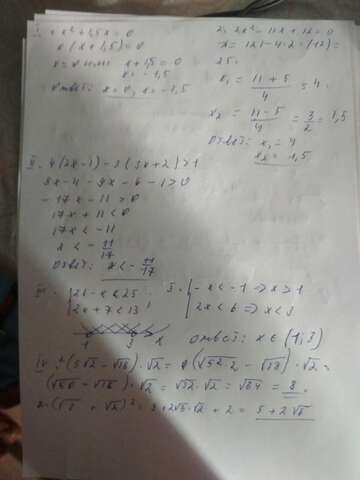 x² + 1,5x = 0
x(x+1,5)=0
x=0 или x+1,5=0
x=-1,5
Ответ: x=0, x=-1,5
2. 2x² - 11x + 12 = 0
25.
x₁ = (11+5)/4 = 4
x₂ = (11-5)/4 = 3/2 = 1,5
Ответ: x₁=4
x₂=1,5
II. 4(2x-1)-3(3x+2)>1
8x-4-9x-6-1>0
-17x-11>0
17x+11<0
17x<-11
x<-11/17
Ответ: x<-11/17
III. 26-x<25
2x+7<13
-x<-1 => x>1
2x<6 => x<3
1 3 x
Ответ: x∈(1;3)
IV. (5√2-√18)·√2 =
(√50-√18)·√2=√32·√2=√64=8.
2. = 3+2√3·√2+2=5+2√6